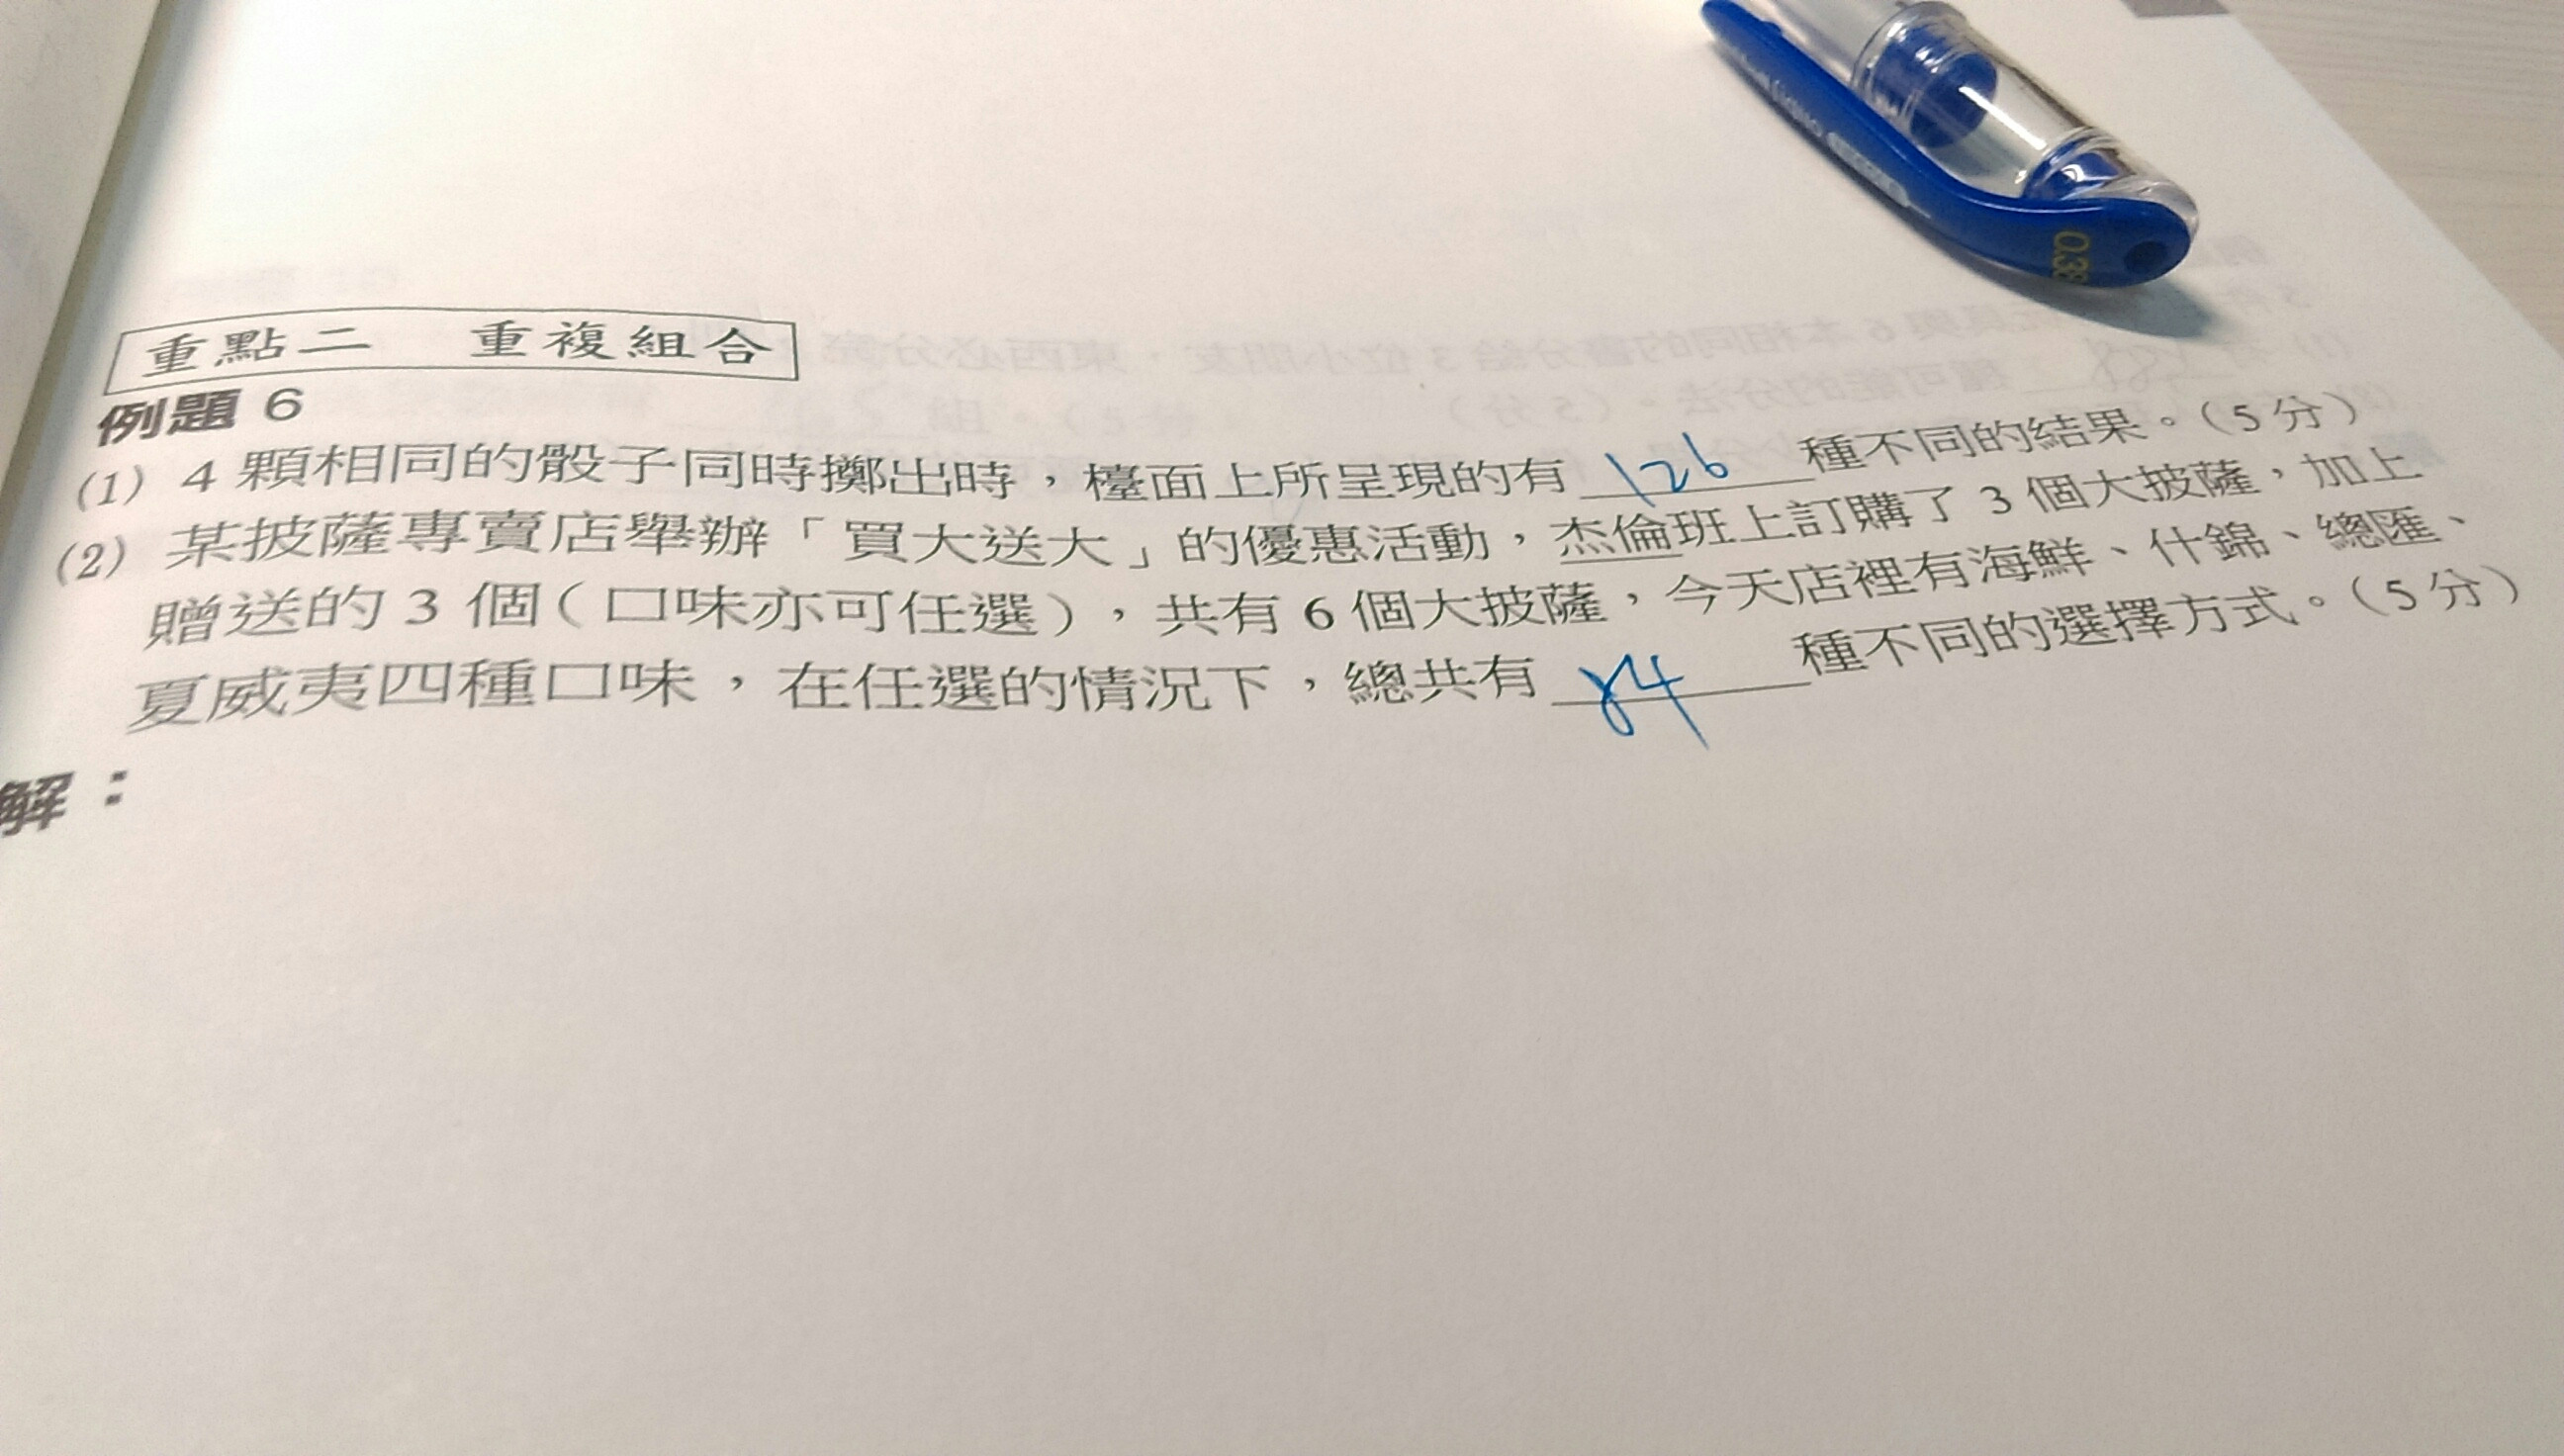 0.38
重點二 重複組合
例題 6
(1) 4 顆相同的骰子同時擲出時，檯面上所呈現的有 126 種不同的結果。(5 分)
(2) 某披薩專賣店舉辦「買大送大」的優惠活動，杰倫班上訂購了 3 個大披薩，加上
贈送的 3 個(口味亦可任選)，共有 6 個大披薩，今天店裡有海鮮、什錦、總匯、
夏威夷四種口味，在任選的情況下，總共有 84 種不同的選擇方式。(5 分)
解：